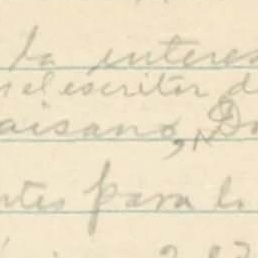 la interes
el escritor d
aisano, Do
ntes para l